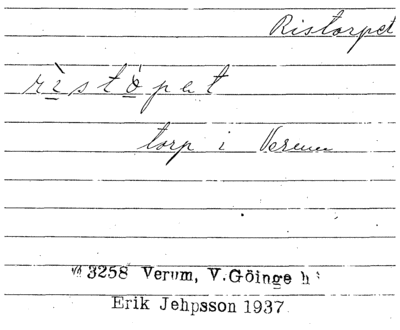 Ristorpet
rìstòpet
torp i Verum
3258 Verum, V. Göinge h
Erik Jehpsson 1937